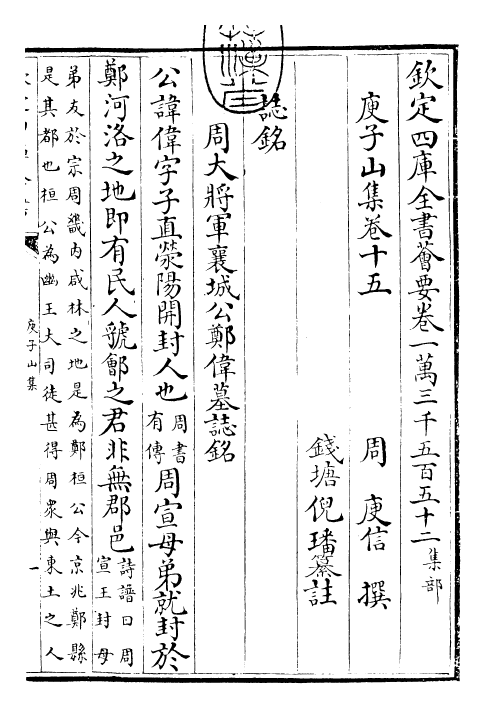 欽定四庫全書薈要卷一萬三千五百五十二 集部
庾子山集卷十五
周 庾信 撰
錢塘倪璠纂註
誌銘
周大將軍襄城公鄭偉墓誌銘
公諱偉字子直滎陽開封人也 周書有傳 周宣母弟就封於
鄭河洛之地即有民人虢鄶之君非無郡邑 詩譜曰周宣王封母
弟友於宗周畿内咸林之地是為鄭桓公今京兆鄭縣
是其都也桓公為幽王大司徒甚得周衆與東土之人
庾子山集
一